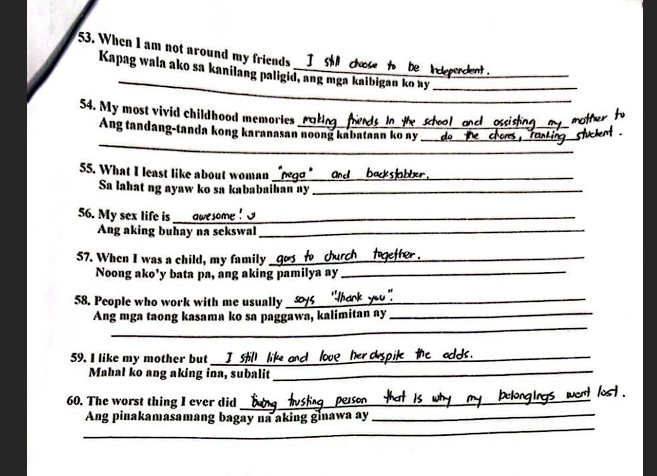 53. When I am not around my friends I still choose to be Independent.
Kapag wala ako sa kanilang paligid, ang mga kaibigan ko ay
54. My most vivid childhood memories making friends in the school and assisting my mother to
Ang tandang-tanda kong karanasan noong kabataan ko ny do the chores, ranking student.
55. What I least like about woman "nega" and backstabber.
Sa lahat ng ayaw ko sa kababaihan ay
56. My sex life is awesome!
Ang aking buhay na sekswal
57. When I was a child, my family goes to church together.
Noong ako'y bata pa, ang aking pamilya ay
58. People who work with me usually says "thank you".
Ang mga taong kasama ko sa paggawa, kalimitan ay
59. I like my mother but I still like and love her despite the odds.
Mahal ko ang aking ina, subalit
60. The worst thing I ever did trusting person that is why my belongings went lost.
Ang pinakamasamang bagay na aking ginawa ay